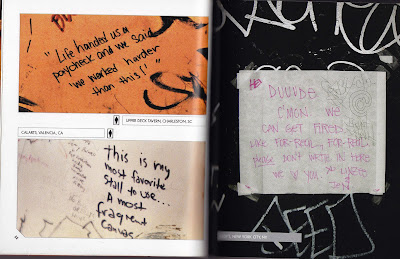 " Life handed us a
paycheck and we said
'we worked harder
than this!' "
UPPER DECK TAVERN, CHARLESTON, SC
CALARTS, VALENCIA, CA
this is my
most favorite
stall to use...
A most
fragrent
canvas
DUUUDE
C'MON. WE
CAN GET FIRED!
LIKE FOR-REAL, FOR-REAL.
PLEASE DON'T WRITE IN HERE
WE ♥ YOU. NO LIKERS
JEN
NEW YORK CITY, NY